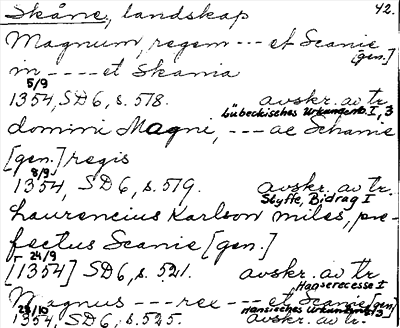 Skåne, landskap 42.
Magnum, regem --- et Scanie
[gen.]
in ---- et Skania
5/9
1354, SD 6, s. 518. avskr. av tr.
Lübeckisches Urkundenb. I, 3
domini Magni, --- ac Schanie
[gen.] regis
8/9
1354, SD 6, s. 519. avskr. av tr.
Styffe, Bidrag I
Laurencius Karlson miles, pre-
fectus Scanie [gen.]
24/9
[1354] SD 6, s. 521. avskr. av tr.
Hanserecesse I
Magnus --- rex --- et Scanie [gen]
29/10 Hansisches Urkundenb. 3
1354, SD 6, s. 525. avskr. av tr.